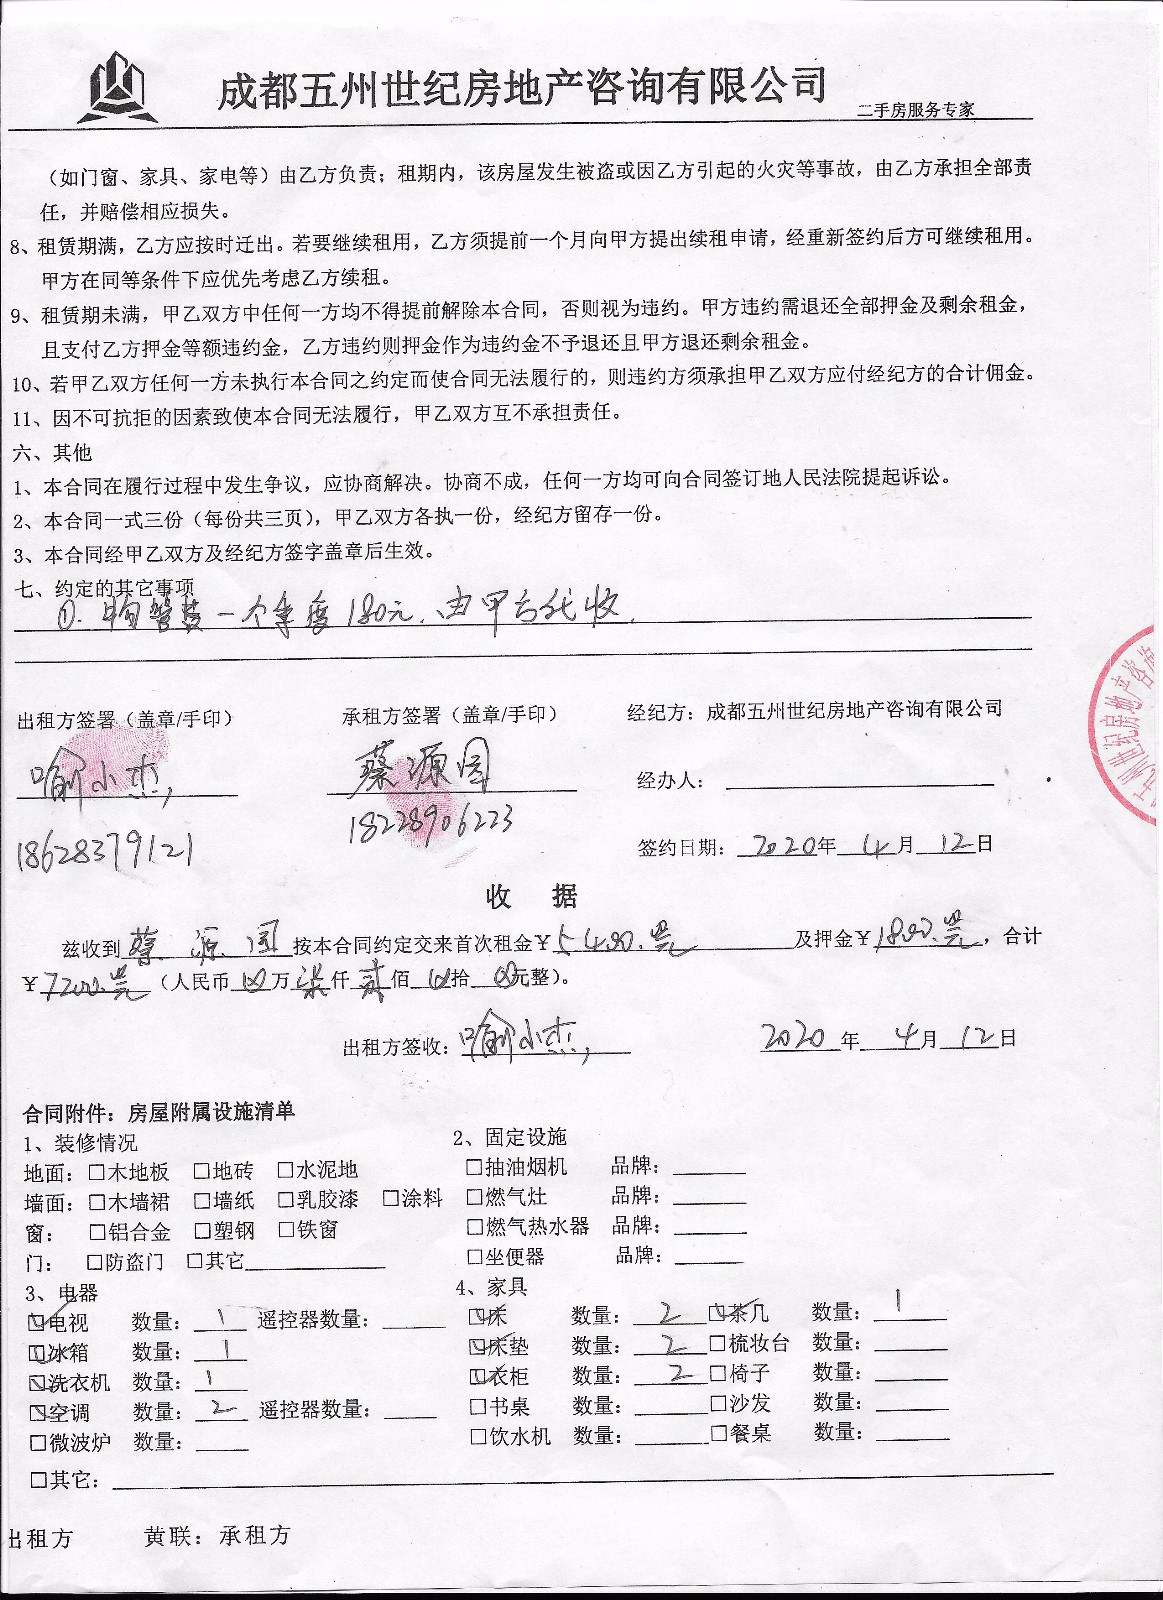 成都五州世纪房地产咨询有限公司
二手房服务专家
（如门窗、家具、家电等）由乙方负责；租期内，该房屋发生被盗或因乙方引起的火灾等事故，由乙方承担全部责
任，并赔偿相应损失。
8、租赁期满，乙方应按时迁出。若要继续租用，乙方须提前一个月向甲方提出续租申请，经重新签约后方可继续租用。
甲方在同等条件下应优先考虑乙方续租。
9、租赁期未满，甲乙双方中任何一方均不得提前解除本合同，否则视为违约。甲方违约需退还全部押金及剩余租金，
且支付乙方押金等额违约金，乙方违约则押金作为违约金不予退还且甲方退还剩余租金。
10、若甲乙双方任何一方未执行本合同之约定而使合同无法履行的，则违约方须承担甲乙双方应付经纪方的合计佣金。
11、因不可抗拒的因素致使本合同无法履行，甲乙双方互不承担责任。
六、其他
1、本合同在履行过程中发生争议，应协商解决。协商不成，任何一方均可向合同签订地人民法院提起诉讼。
2、本合同一式三份（每份共三页），甲乙双方各执一份，经纪方留存一份。
3、本合同经甲乙双方及经纪方签字盖章后生效。
七、约定的其它事项
①.物管费一个季度180元.由甲方代收.
出租方签署（盖章/手印） 承租方签署（盖章/手印） 经纪方：成都五州世纪房地产咨询有限公司
喻小杰 蔡源国 经办人：
18628379121 18228906223 签约日期：2020年4月12日
五州世纪房地产咨询
收 据
兹收到蔡源国按本合同约定交来首次租金￥5400.及押金￥1800.，合计
￥7200.（人民币 万柒仟贰佰 拾 元整）。
出租方签收：喻小杰 2020年4月12日
合同附件：房屋附属设施清单
1、装修情况 2、固定设施
地面：□木地板 □地砖 □水泥地 □抽油烟机 品牌：
墙面：□木墙裙 □墙纸 □乳胶漆 □涂料 □燃气灶 品牌：
窗： □铝合金 □塑钢 □铁窗 □燃气热水器 品牌：
门： □防盗门 □其它 □坐便器 品牌：
3、电器 4、家具
☑电视 数量：1 遥控器数量： ☑床 数量：2 ☑茶几 数量：1
☑冰箱 数量：1 ☑床垫 数量：2 □梳妆台 数量：
☑洗衣机 数量：1 ☑衣柜 数量：2 □椅子 数量：
☑空调 数量：2 遥控器数量： □书桌 数量： □沙发 数量：
□微波炉 数量： □饮水机 数量： □餐桌 数量：
□其它：
出租方 黄联：承租方